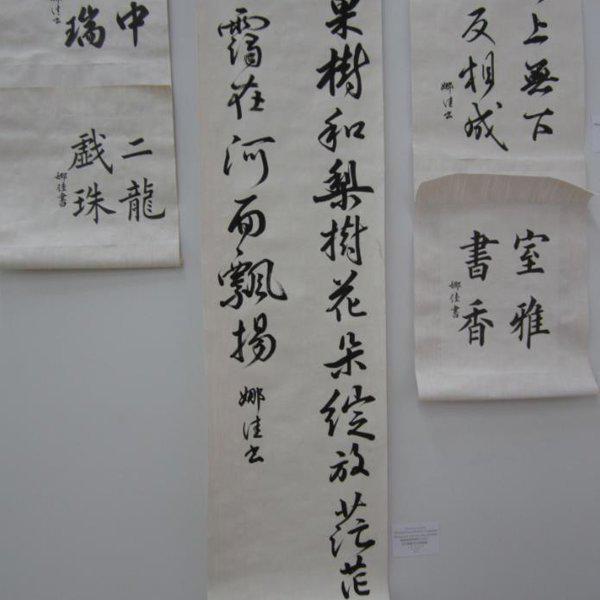 上無下
反相成
娜佳书
室雅
書香
娜佳書
果樹和梨樹花朵綻放茫茫
靄在河面飄揚
娜佳书
中
瑞
娜佳书
二龍
戯珠
娜佳書